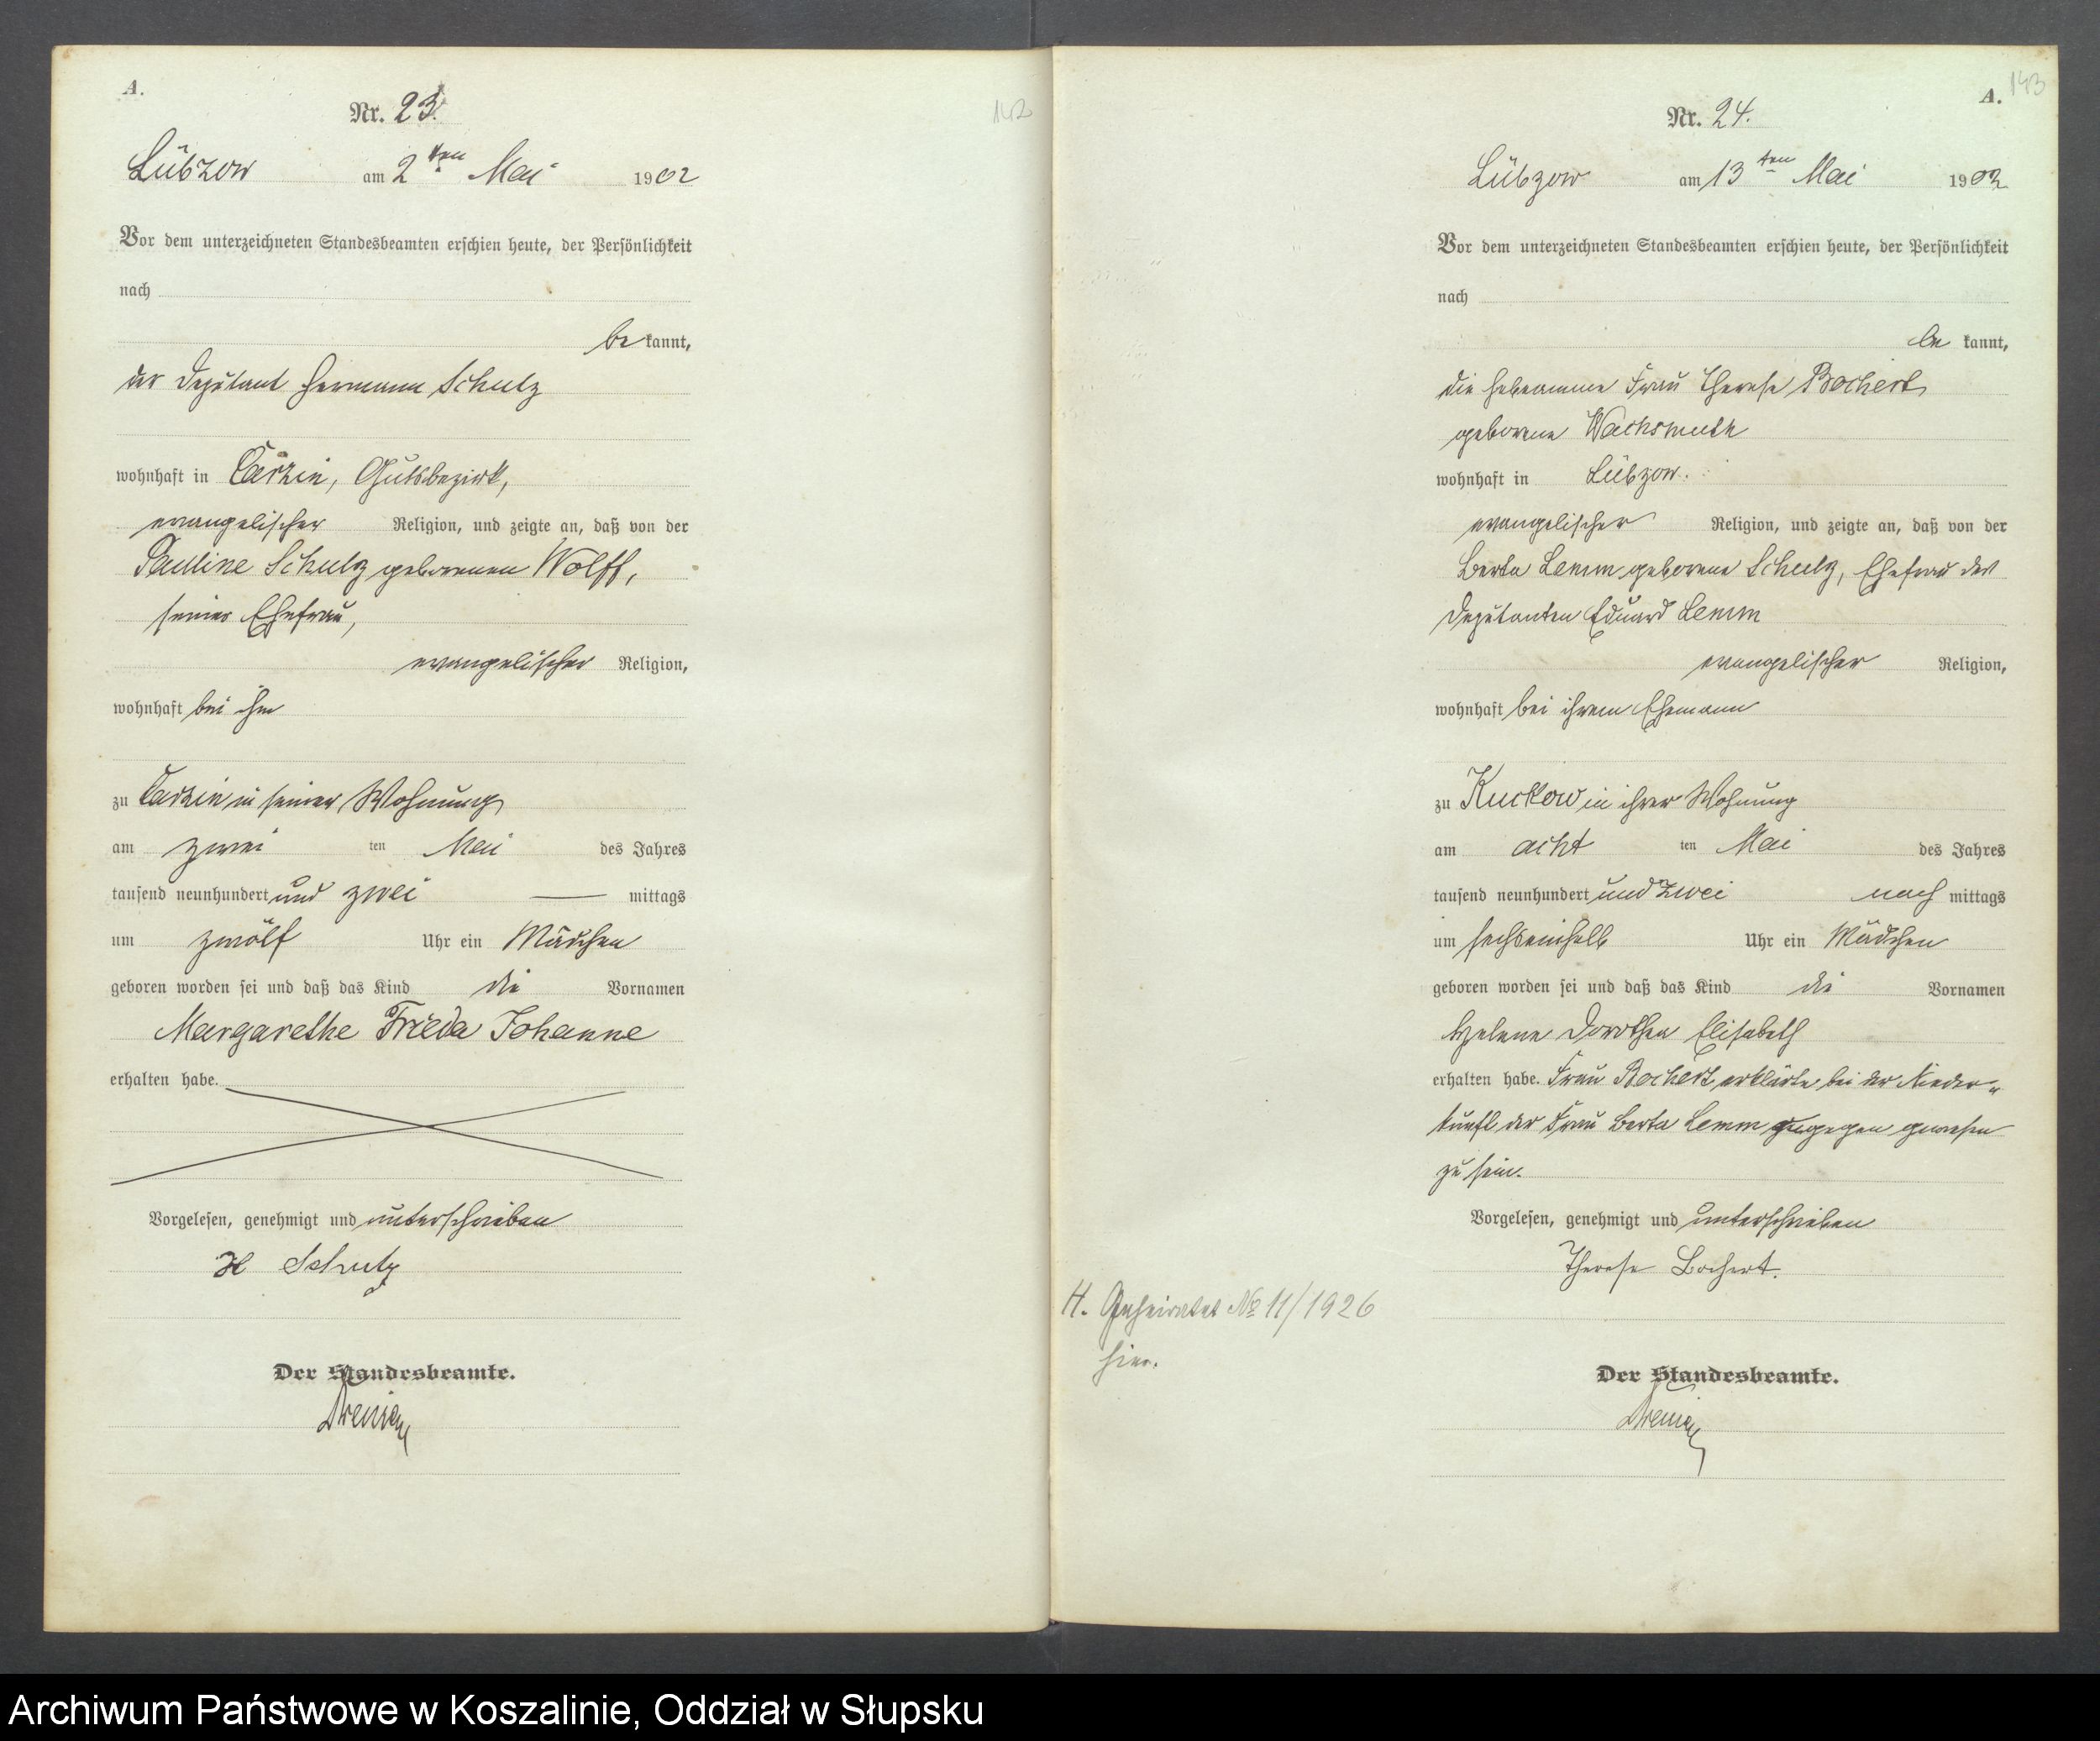 A.
Nr. 23.
142
Lübzow am 2ten Mai 1902
Vor dem unterzeichneten Standesbeamten erschien heute, der Persönlichkeit
nach
be kannt,
der Deputant Hermann Schulz
wohnhaft in Carzin, Gutsbezirk,
evangelischer Religion, und zeigte an, daß von der
Pauline Schulz geborenen Wolff,
seiner Ehefrau,
evangelischer Religion,
wohnhaft bei ihm
zu Carzin in seiner Wohnung
am zwei ten Mai des Jahres
tausend neunhundert und zwei — mittags
um zwölf Uhr ein Mädchen
geboren worden sei und daß das Kind die Vornamen
Margarethe Frieda Johanne
erhalten habe.
Vorgelesen, genehmigt und unterschrieben
H Schulz
Der Standesbeamte.
143
A.
Nr. 24.
Lübzow am 13ten Mai 1902
Vor dem unterzeichneten Standesbeamten erschien heute, der Persönlichkeit
nach
be kannt,
die Hebeamme Frau Therese Bochert
geborene Wachsmuth
wohnhaft in Lübzow.
evangelischer Religion, und zeigte an, daß von der
Berta Lemm geborene Schulz, Ehefrau des
Deputanten Eduard Lemm
evangelischer Religion,
wohnhaft bei ihrem Ehemann
zu Kuckow in ihrer Wohnung
am acht ten Mai des Jahres
tausend neunhundert und zwei nach mittags
um sechseinhalb Uhr ein Mädchen
geboren worden sei und daß das Kind die Vornamen
Helene Dorothea Elisabeth
erhalten habe. Frau Bochert erklärte bei der Nieder-
kunft der Frau Berta Lemm zugegen gewesen
zu sein.
Vorgelesen, genehmigt und unterschrieben
Therese Bochert.
H. Geheiratet No 11/1926
hier.
Der Standesbeamte.
Archiwum Państwowe w Koszalinie, Oddział w Słupsku